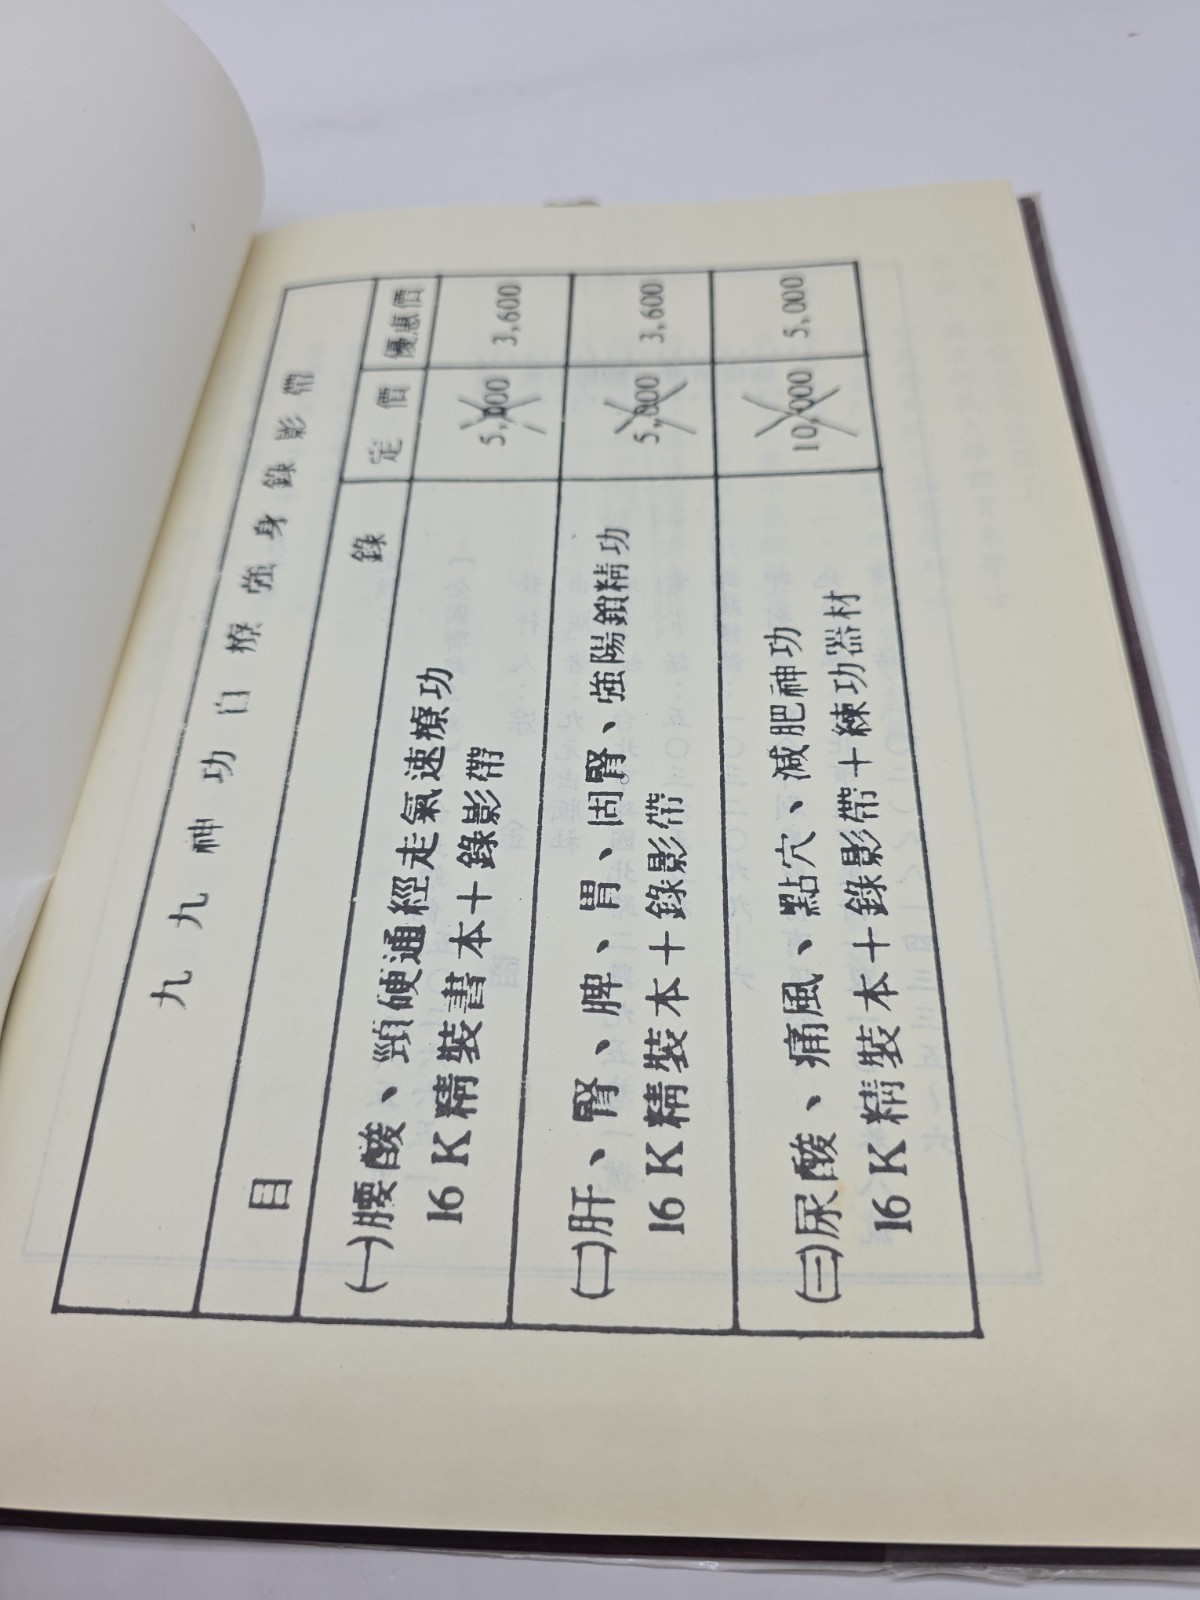 九九神功自療強身錄影帶
目錄 定價 優惠價
(一)腰酸、頸硬通經走氣速療功 5,000 3,600
16K精裝書本＋錄影帶
(二)肝、腎、脾、胃、固腎、強陽鎖精功 5,000 3,600
16K精裝本＋錄影帶
(三)尿酸、痛風、點穴、減肥神功 10,000 5,000
16K精裝本＋錄影帶＋練功器材